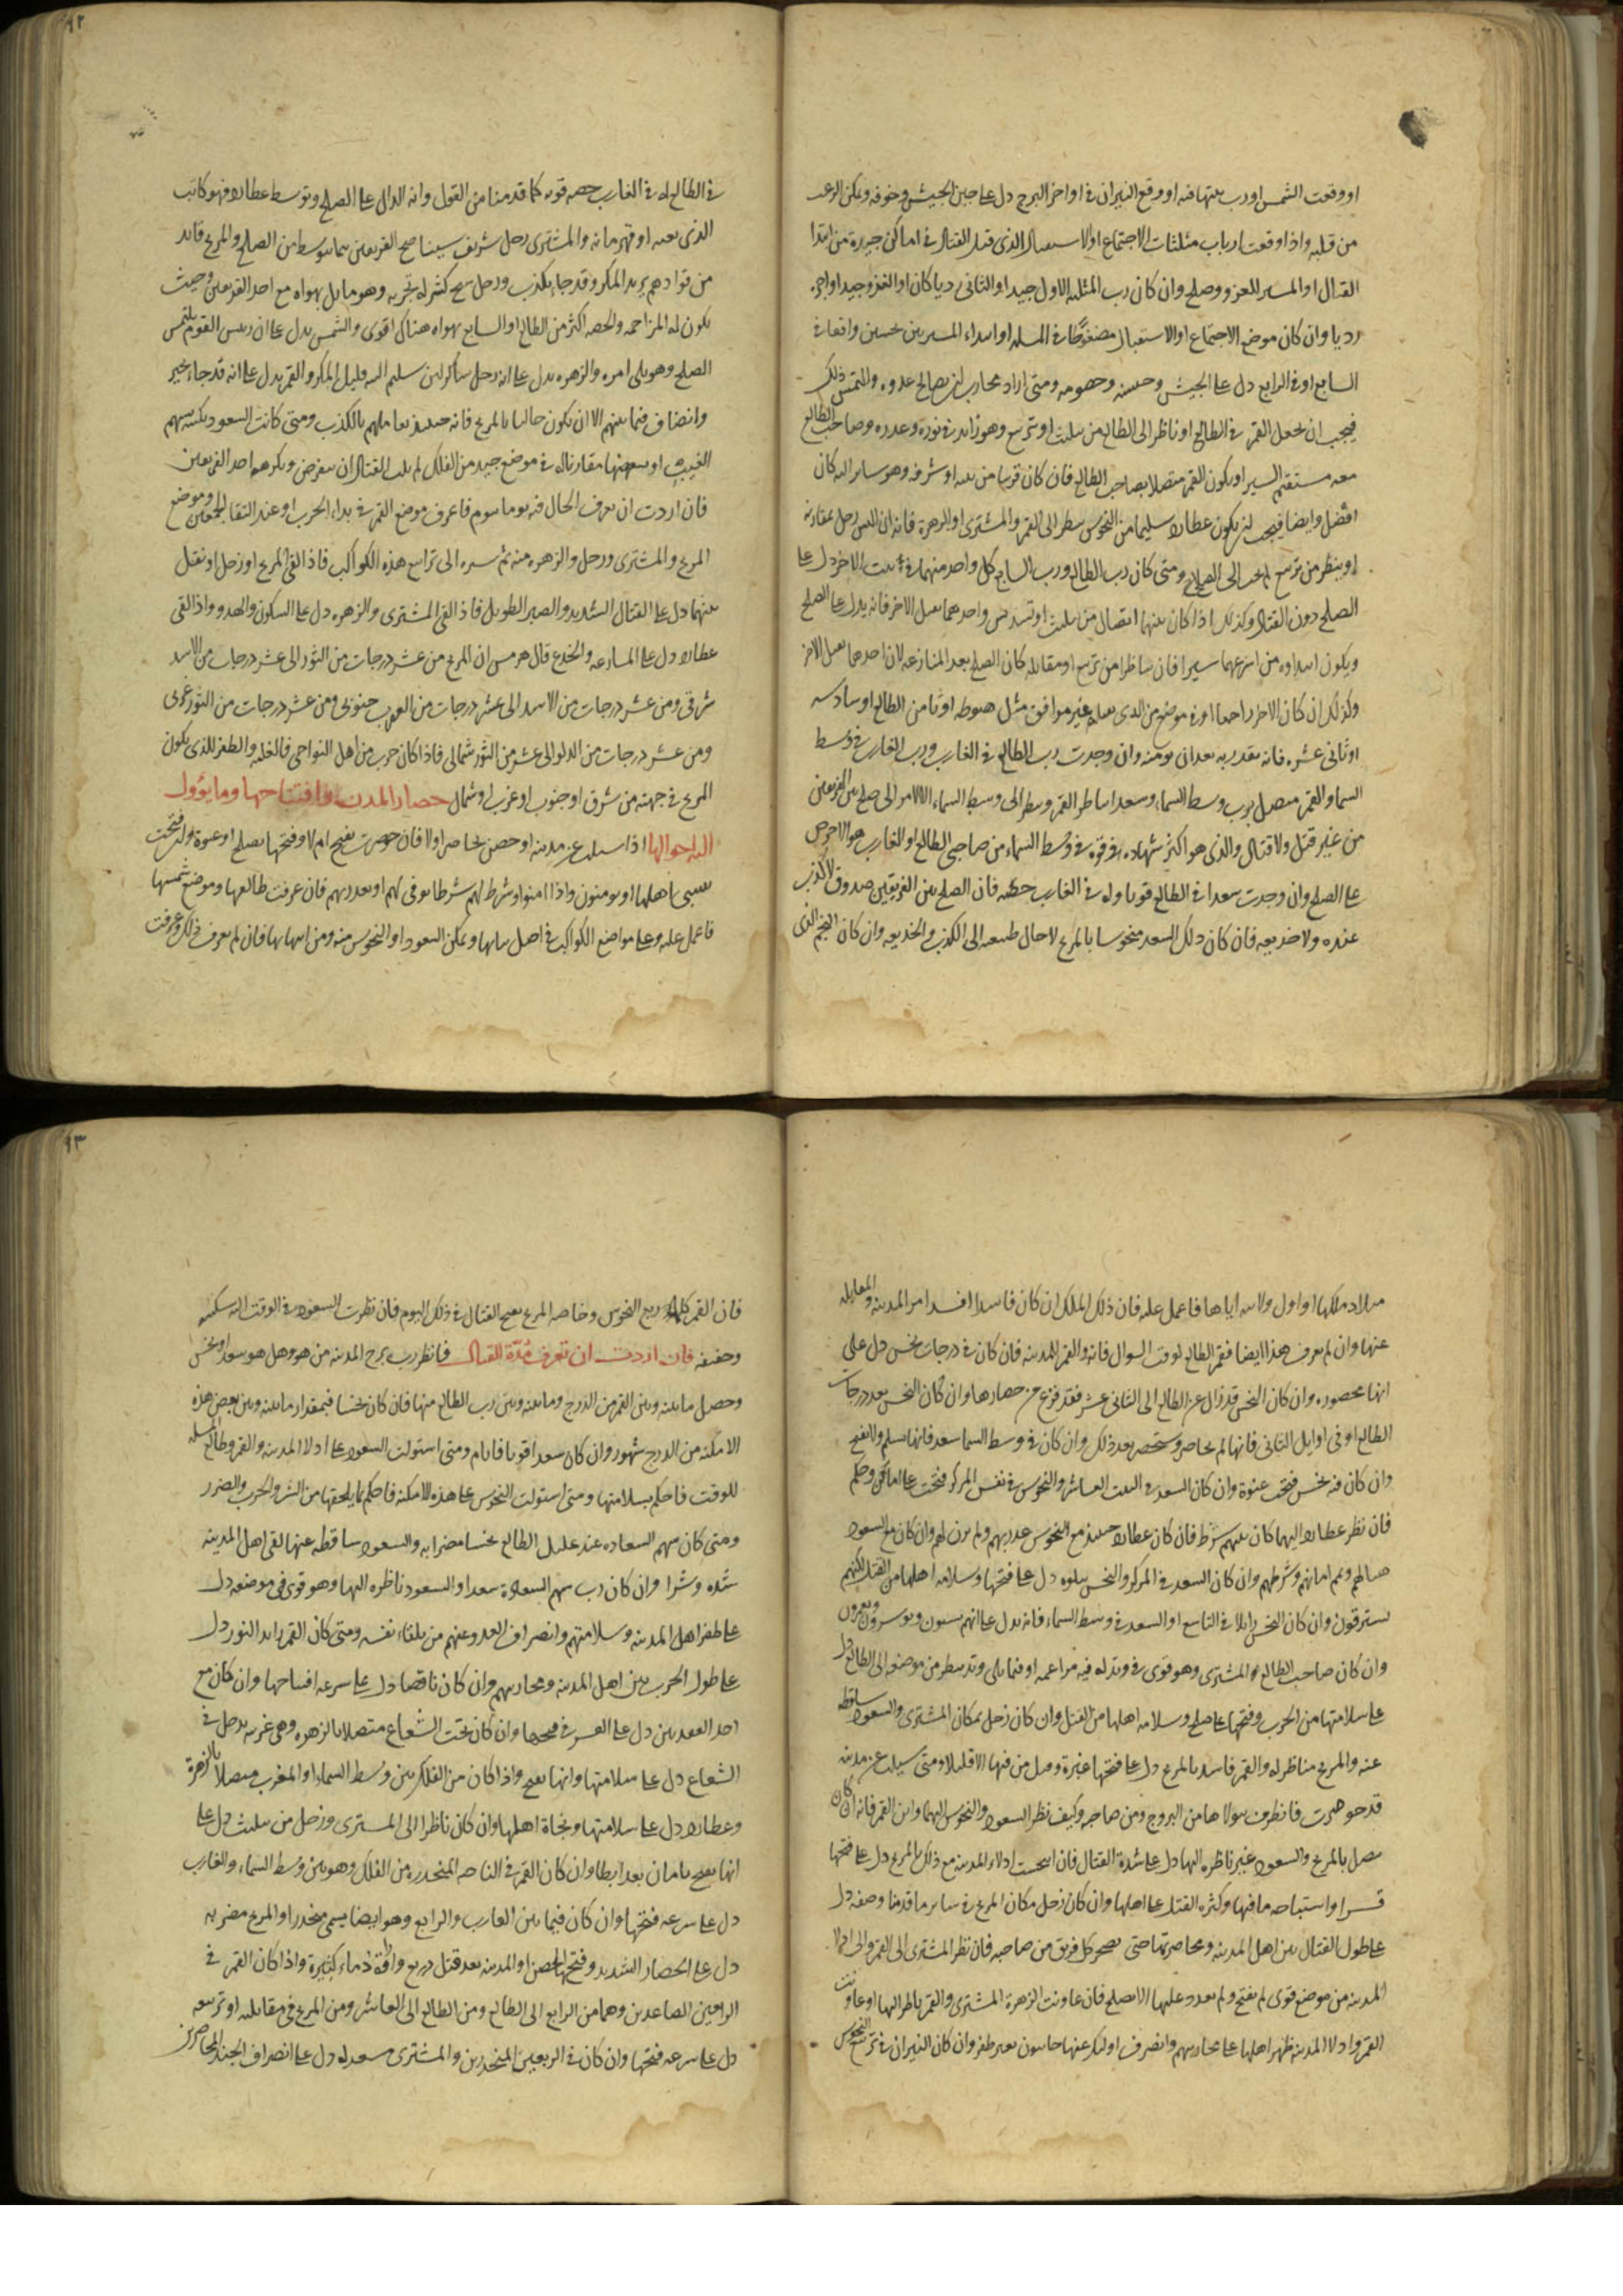 او وقعت الشمس اورب بيتها فيه او وقع النيران في اواخر البرج دل على جبن الجيش وخوفه وتمكن الرعب
من قلبه واذا وقعت ارباب مثلثات الاجتماع او الاستقبال الذي قبل القتال في اماكن جيدة من ابتدا
القتال او المسير للغزو وصلح وان كان رب المثلثه الاول جيدا والثاني رديا كان اول الغزو جيدا واخره
رديا وان كان موضع الاجتماع او الاستقبال مضغوطا في المسله او ابتداء المسير بين نحسين واقعا في
السابع او في الرابع دل على الجيش وحبسه وهمومه ومتى اراد محارب ان يصالح عدوه والتمس ذلك
فيجب ان يجعل القمر في الطالع او ناظر الى الطالع من تثليث او تربيع وهو زائد في نوره وعدده وصاحب الطالع
معه مستقيم السير او يكون القمر متصلا بصاحب الطالع فان كان قريبا من بيته او شرفه وهو سائر اليه كان
افضل وايضا فيجب ان يكون عطارد سليما من النحوس ينظر الى القمر والمشترى او الزهرة فانه ان البس زحل بمقارنه
او ينظر من تربيع لم يجب الى الصلح ومتى كان رب الطالع ورب السابع كل واحد منهما في بيت الاخر دل على
الصلح دون القتال وكذلك اذا كان بينهما اتصال من تثليث او تسديس واحدهما يقبل الاخر فانه يدل على الصلح
ويكون ابتداوه من اسرعهما سيرا فان تناظرا من تربيع او مقابله كان الصلح بعد المنازعه لان احدهما يقبل الاخر
وكذلك ان كان الاخر راجعا او في موضع من الذي يقبله غير موافق مثل هبوطه او ثامن الطالع او سادسه
او ثاني عشره فانه يغدر به بعد ان يومنه وان وجدت رب الطالع في الغارب ورب الغارب في وسط
السما والقمر متصل برب وسط السماء وسعدا يناظر القمر وينظر الى وسط السماء الالامر الى صلح بين الفريقين
من غير قتل ولا قتال والذي هو اكثر شهاده وقوة في وسط السماء من صاحبى الطالع او الغارب هو الاحرص
على الصلح وان وجدت سعدا في الطالع قويا وله في الغارب حصه فان الصلح بين الفريقين صدوق لا كذب
عنده ولا خديعه فان كان ذلك السعد منحوسا بالمريخ لاحال طبيعه الى الكذب والخديعه وان كان النجم الذي
في الطالع له في الغارب حصه قويه كما قدمنا من القول وانه الدال على الصلح وتوسط عطارد فهو كاتب
الذي بعثه او قهرمانه والمشترى رجل شريف سيناصح الفريقين بما يتوسط من الصلح والمريخ قايد
من قوادهم يريد المكر وقد جاء بكذب وزحل شيخ كثير التجربه وهو مايل بهواه مع احد الفريقين وحيث
يكون له المزاحمه والحصه اكثر من الطالع او السابع يهواه هناك اقوى والشمس يدل على ان رييس القوم يلتمس
الصلح وهو يلى امره والزهره يدل على انه رجل ساكن لين سليم النيه قليل المكر والقمر يدل على انه قد جاء بخير
وانصاف فيما بينهم الا ان يكون حاليا بالمريخ فانه حينيذ يعاملهم بالكذب ومتى كانت السعود يكتنفه سهم
الغيب او سهمها مقارنا له في موضع جيد من الفلك لم يلبث القتال ان ينقرض ويكرهه احد الفريقين
فان اردت ان تعرف الحال فيه يوما بيوم فاعرف موضع القمر في بداء الحرب او عند التقا الجمعين وموضع
المريخ والمشترى وزحل والزهره منه ثم سيره الى ترابيع هذه الكواكب فاذا لقى المريخ او زحل او نقل
بينهما دل على القتال الشديد والصبر الطويل فاذا لقى المشترى والزهره دل على السكون والهدو واذا لقى
عطارد دل على المسارعه والخدع قال هرمس ان المريخ من عشر درجات من الثور الى عشر درجات من الاسد
شرقي ومن عشر درجات من الاسد الى عشر درجات من العقرب جنوبي ومن عشر درجات من الثور غربي
ومن عشر درجات من الدلو الى عشر من الثور شمالي فاذا كان حرب من اهل النواحي فالغلبه والظفر للذي يكون
المريخ في جهته من شرق او جنوب او غرب او شمال حصار المدن وافتتاحها وما يؤول
اليه احوالها اذا سئلت عن مدينه او حصن يحاصر اولا فان حوصرت يفتح ام لا وفتحها بصلح او عنوة وان فتحت
يسبى اهلها او يومنون واذا امنوا وشرط لهم شرطا يوفى لهم او يغدر بهم فان عرفت طالعها وموضع شمسها
فاعمل عليه وعلى مواضع الكواكب في اصل بنائها وتمكن السعود او النحوس منه ومن ابتدائها فان لم يعرف ذلك وعرفت
ميلاد ملكها او اول ولايته اياها فاعمل عليه فان ذلك الملك ان كان فاسدا افسد امر المدينه والمقابله
عنها وان لم يعرف هذا ايضا فقم الطالع لوقت السوال فانه والقمر للمدينه فان كان في درجات نحس دل على
انها محصوره وان كان النحس قد زال عن الطالع الى الثاني عشر فقد فرغ من حصارها وان كان النحس بعد درجات
الطالع او في اوايل الثاني فانها لم يحاصر وستحصر بعد ذلك وان كان في وسط السما سعد فانها تسلم ولا يفتح
وان كان فيه نحس فتحت عنوة وان كان السعد في البيت العاشر والنحوس في نفس المركز فتحت على امان وحكم
فان نظر عطارد اليهما كان بينهم شرط فان كان عطارد حينيذ مع النحوس غدر بهم ولم يوف لهم وان كان مع السعود
صالحهم وتم امانهم وشرطهم وان كان السعد في المركز والنحس يتلوه دل على فتحها وسلامه اهلها من القتل لكنهم
يسترقون وان كان النحس زايلا في التاسع او السعد في وسط السماء فانه يدل على انهم يسبون ويوسرون ويعرون
وان كان صاحب الطالع المشترى وهو قوى في وتد له فيه مزاعمه او فيما يلى وتد ينظر من موضعه الى الطالع دل
على سلامتها من الحرب وفتحها على صلح وسلامه اهلها من القتل وان كان زحل بمكان المشترى والسعود ساقطه
عنه والمريخ مناظر له والقمر فاسد بالمريخ دل على فتحها عنوة وقتل من فيها الا قليلا ومتى سيلت عن مدينه
قد حوصرت فانظرت ولاها من البروج ومن صاحبه وكيف نظر السعود والنحوس اليهما واين القمر فانه ان كان
متصل بالمريخ والسعود غير ناظره اليها دل على شدة القتال فان انتحست ادلاء المدينه مع ذلك بالمريخ دل على فتحها
قسرا واستباحه ما فيها وكثره القتل على اهلها وان كان زحل مكان المريخ في ساير ما قدمنا وصفه دل
على طول القتال بين اهل المدينه ومحاصرتها حتى يضجر كل فريق من صاحبه فان نظر المشترى الى القمر والى ادلا
المدينه من موضع قوى لم يفتح ولم يقدر عليها الا بصلح فان عاونت الزهرة المشترى والقمر ناظر اليها او عاونت
القمر وادلا المدينه ظهر اهلها على محاربيهم وانصرف اوليك عنها خايبون بغير ظفر وان كان النيران في تربيع النحوس
فان القمر كلما ربع النحوس وخاصه المريخ يهيج القتال في ذلك اليوم فان نظرت السعود في الوقت اليه سكنه
وخففه فان اردت ان تعرف مدة القتال فانظر رب برج المدينه من هو وهل هو سعد او نحس
وحصل ما بينه وبين القمر من الدرج وما بينه وبين رب الطالع منها فان كان نحسا فبمقدار ما بينه وبين بعض هذه
الامكنه من الدرج شهور وان كان سعدا قويا فايام ومتى استولت السعود على ادلا المدينه والقمر وطالع المسله
للوقت فاحكم بسلامتها ومتى استولت النحوس على هذه الامكنه فاحكم بما يلحقها من الشر والحرب والضرر
ومتى كان سهم السعاده عند تحليل الطالع نحسا مضرا به والسعود ساقطه عنها لقى اهل المدينه
شده وشرا وان كان رب سهم السعادة سعدا والسعود ناظره اليها وهو قوى في موضعه دل
على ظفر اهل المدينه وسلامتهم وانصراف العدو عنهم من تلقاء نفسه ومتى كان القمر زايد النور دل
على طول الحرب بين اهل المدينه ومحاربيهم وان كان ناقصا دل على سرعه افتتاحها وان كان مع
احد العقدتين دل على العسر في فتحها وان كان تحت الشعاع متصلا بالزهره وهي غربيه يدخل في
الشعاع دل على سلامتها وانها يفتح واذا كان من الفلك بين وسط السماء او المغرب متصلا بالزهرة
وعطارد دل على سلامتها ونجاة اهلها وان كان ناظرا الى المشترى وزحل من تثليث دل على
انها يفتح بامان بعد ابطا وان كان القمر في الناحيه المنحدره من الفلك وهو بين وسط السماء والغارب
دل على سرعه فتحها وان كان فيما بين الغارب والرابع وهو ايضا يسمى منحدرا والمريخ مضر به
دل على الحصار الشديد وفتح الحصن او المدينه بعد قتل ذريع واراقة دماء كثيرة واذا كان القمر في
الربعين الصاعدين وهما من الرابع الى الطالع ومن الطالع الى العاشر ومن المريخ في مقابلته او تربيعه
دل على سرعه فتحها وان كان في الربعين المنحدرين والمشترى مسعد له دل على انصراف الجند المحاصرين